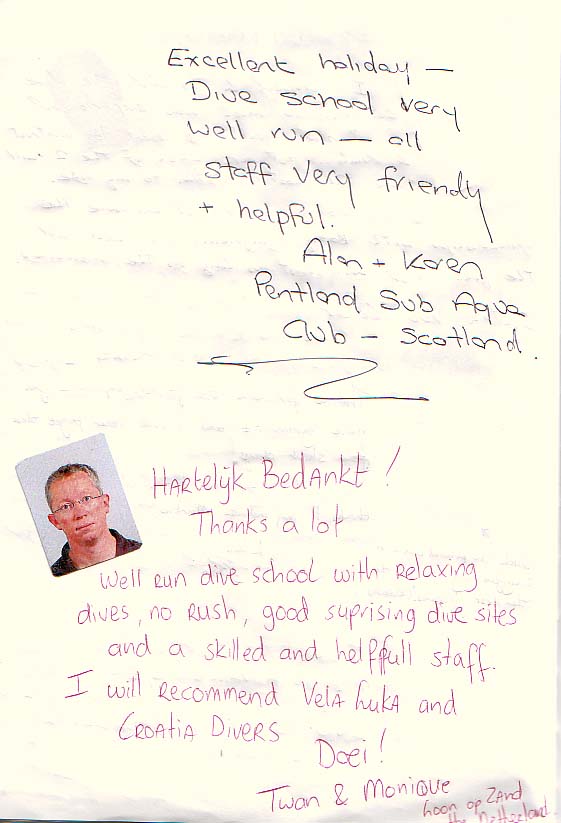 Excellent holiday —
Dive school very
well run — all
staff very friendly
+ helpful.
Alan + Karen
Pentland Sub Aqua
Club – Scotland.
Hartelijk Bedankt!
Thanks a lot
Well run dive school with relaxing
dives, no rush, good suprising dive sites
and a skilled and helpffull staff.
I will recommend Vela Luka and
Croatia Divers
Doei!
Twan & Monique
Loon op Zand
the Netherland.